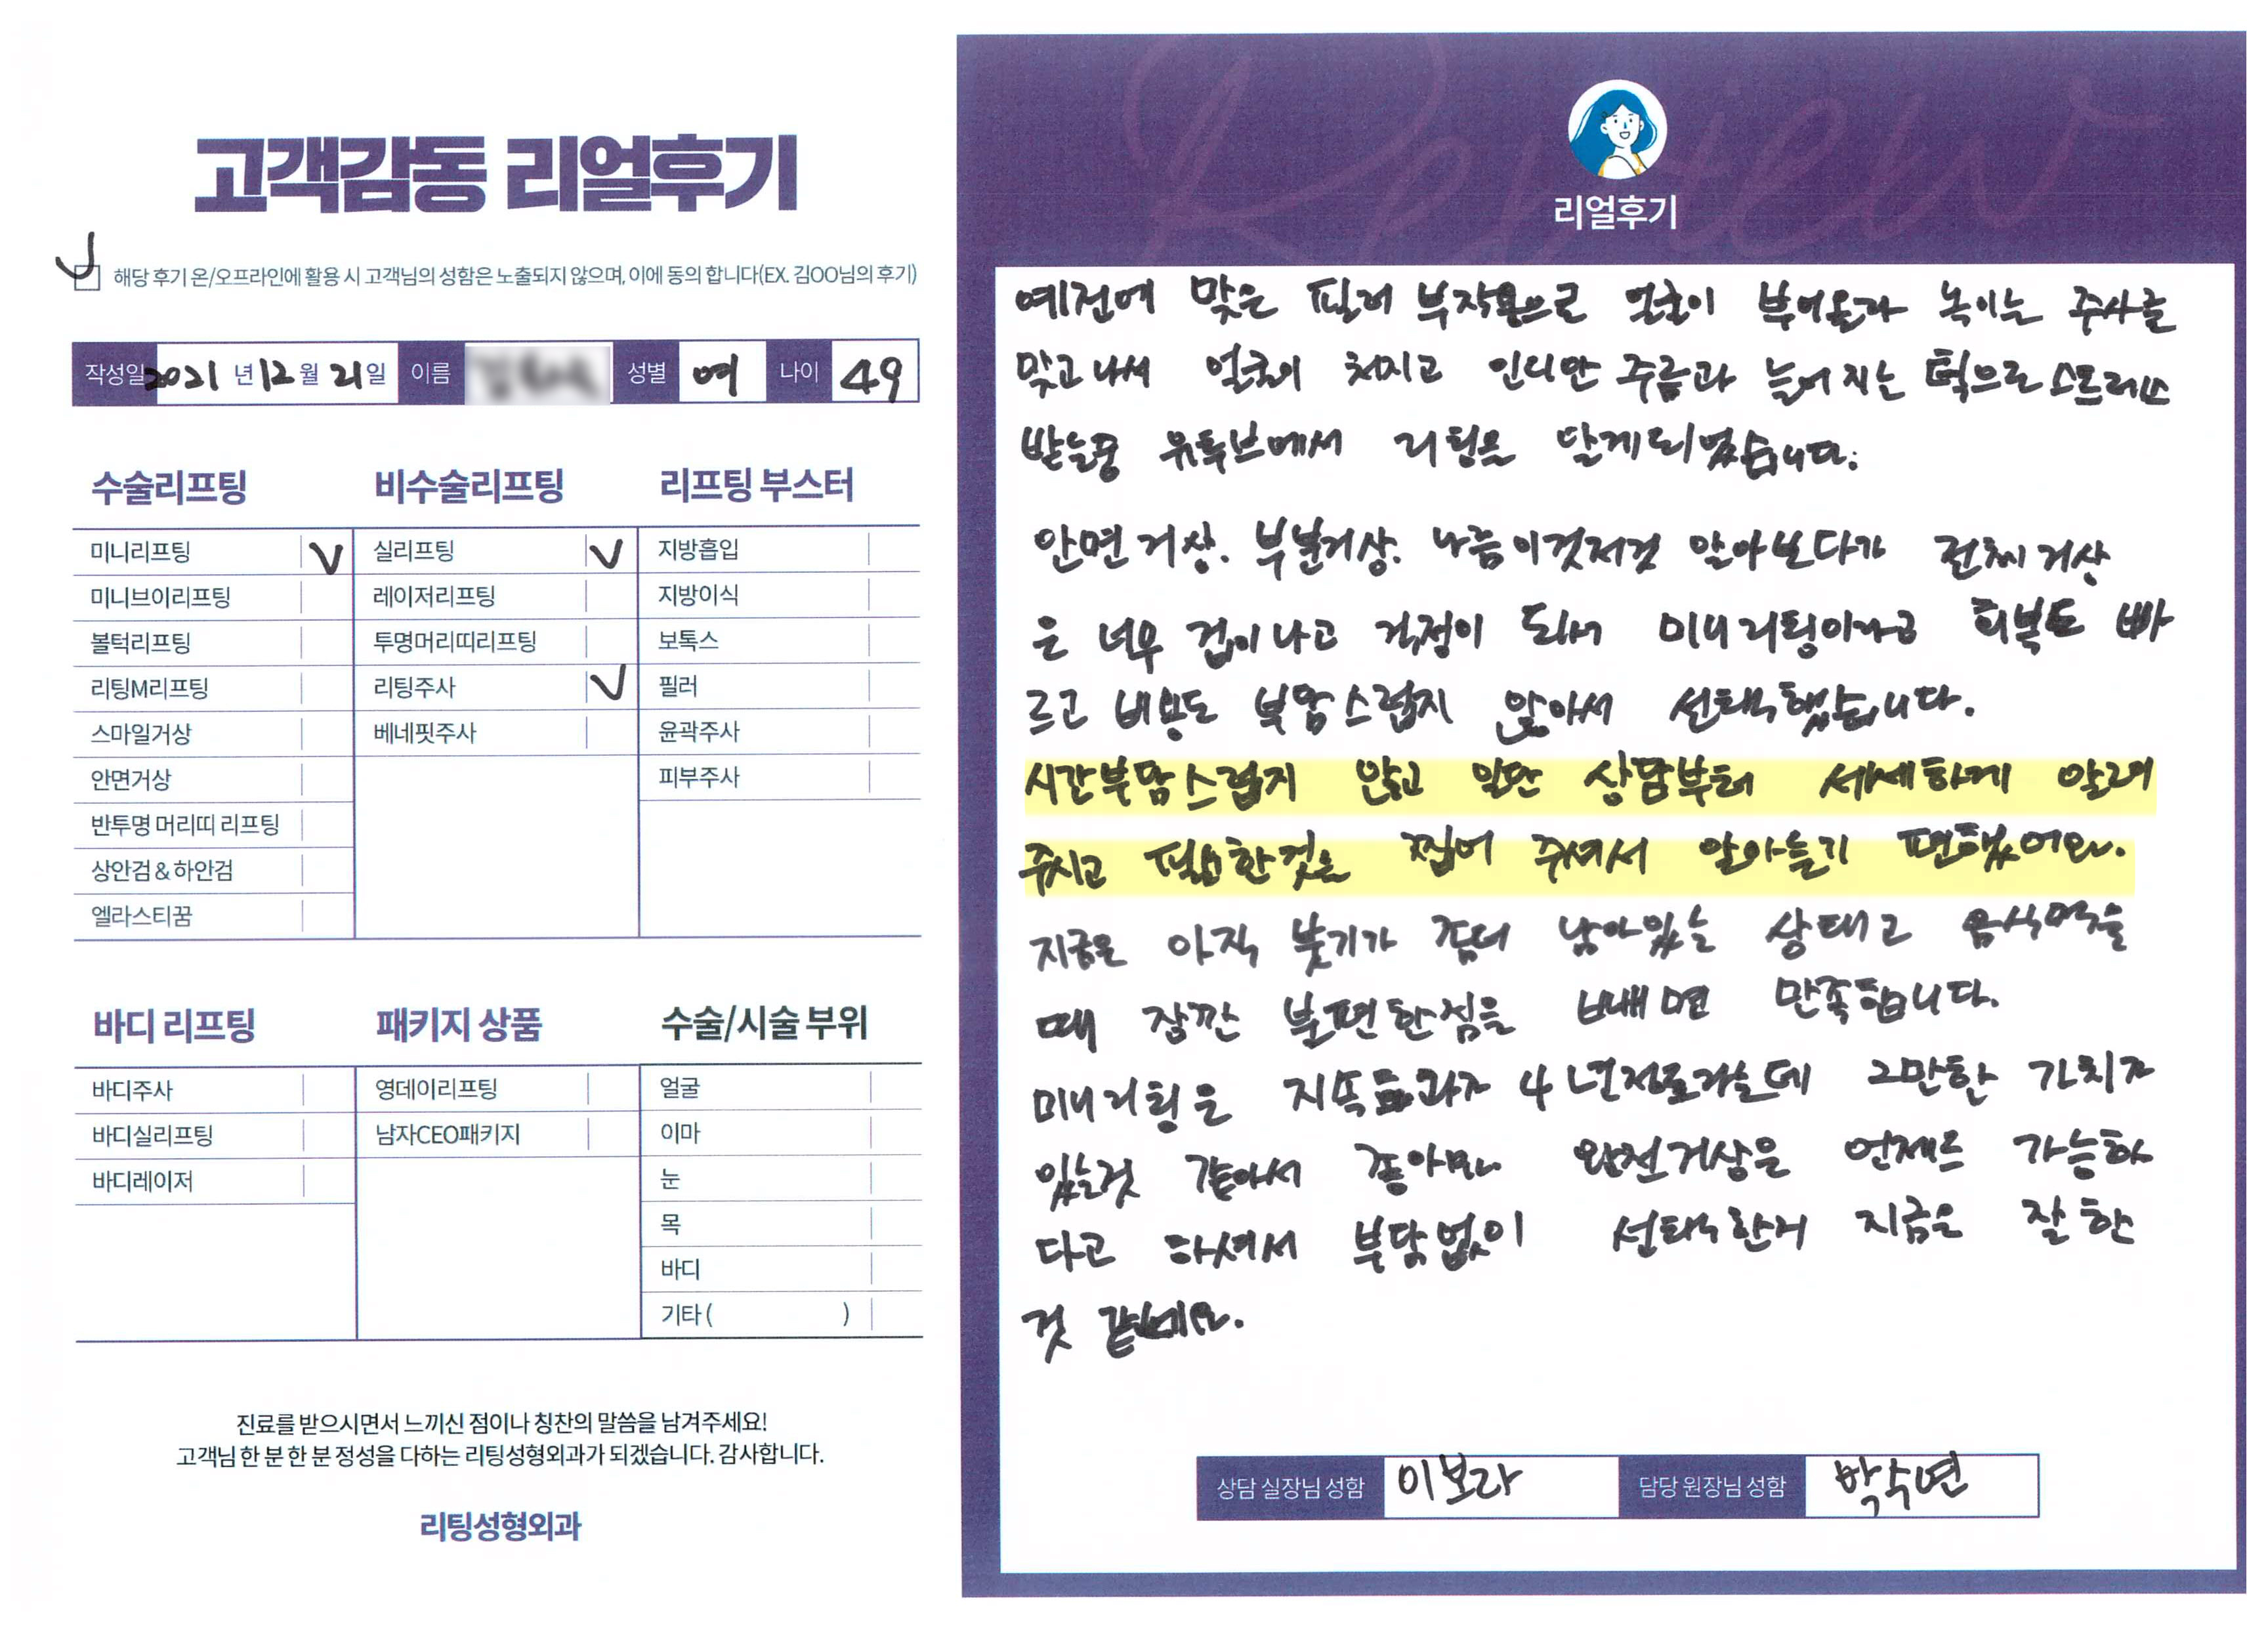 고객감동 리얼후기
해당 후기 온/오프라인에 활용 시 고객님의 성함은 노출되지 않으며, 이에 동의 합니다(EX. 김OO님의 후기)
작성일 2021 년 12 월 21 일 이름 성별 여 나이 49
수술리프팅
미니리프팅 V
미니브이리프팅
볼턱리프팅
리팅M리프팅
스마일거상
안면거상
반투명 머리띠 리프팅
상안검&하안검
엘라스티꿈
비수술리프팅
실리프팅 V
레이저리프팅
투명머리띠리프팅
리팅주사 V
베네핏주사
리프팅 부스터
지방흡입
지방이식
보톡스
필러
윤곽주사
피부주사
바디 리프팅
바디주사
바디실리프팅
바디레이저
패키지 상품
영데이리프팅
남자CEO패키지
수술/시술 부위
얼굴
이마
눈
목
바디
기타 ( )
진료를 받으시면서 느끼신 점이나 칭찬의 말씀을 남겨주세요!
고객님 한 분 한 분 정성을 다하는 리팅성형외과가 되겠습니다. 감사합니다.
리팅성형외과
Review
리얼후기
예전에 맞은 필러 부작용으로 얼굴이 부어올라 녹이는 주사를
맞고 나서 얼굴이 처지고 인디안 주름과 늘어지는 턱으로 스트레스
받는중 유튜브에서 리팅을 알게되었습니다.
안면거상. 부분거상. 나름 이것저것 알아보다가 전체거상
은 너무 겁이나고 걱정이 되서 미니리팅이라고 회복도 빠
르고 비용도 부담스럽지 않아서 선택했습니다.
시간부담스럽지 않고 일단 상담부터 세세하게 알려
주시고 필요한것을 찝어 주셔서 알아듣기 편했어요.
지금은 아직 붓기가 좀더 남아있는 상태고 음식먹을
때 잠깐 불편한점을 빼면 만족합니다.
미니리팅은 지속효과가 4년정도라는데 그만한 가치가
있는것 같아서 좋아요. 완전거상은 언제든 가능하
다고 하셔서 부담없이 선택한거 지금은 잘 한
것 같네요.
상담 실장님 성함 이보라 담당 원장님 성함 박수연